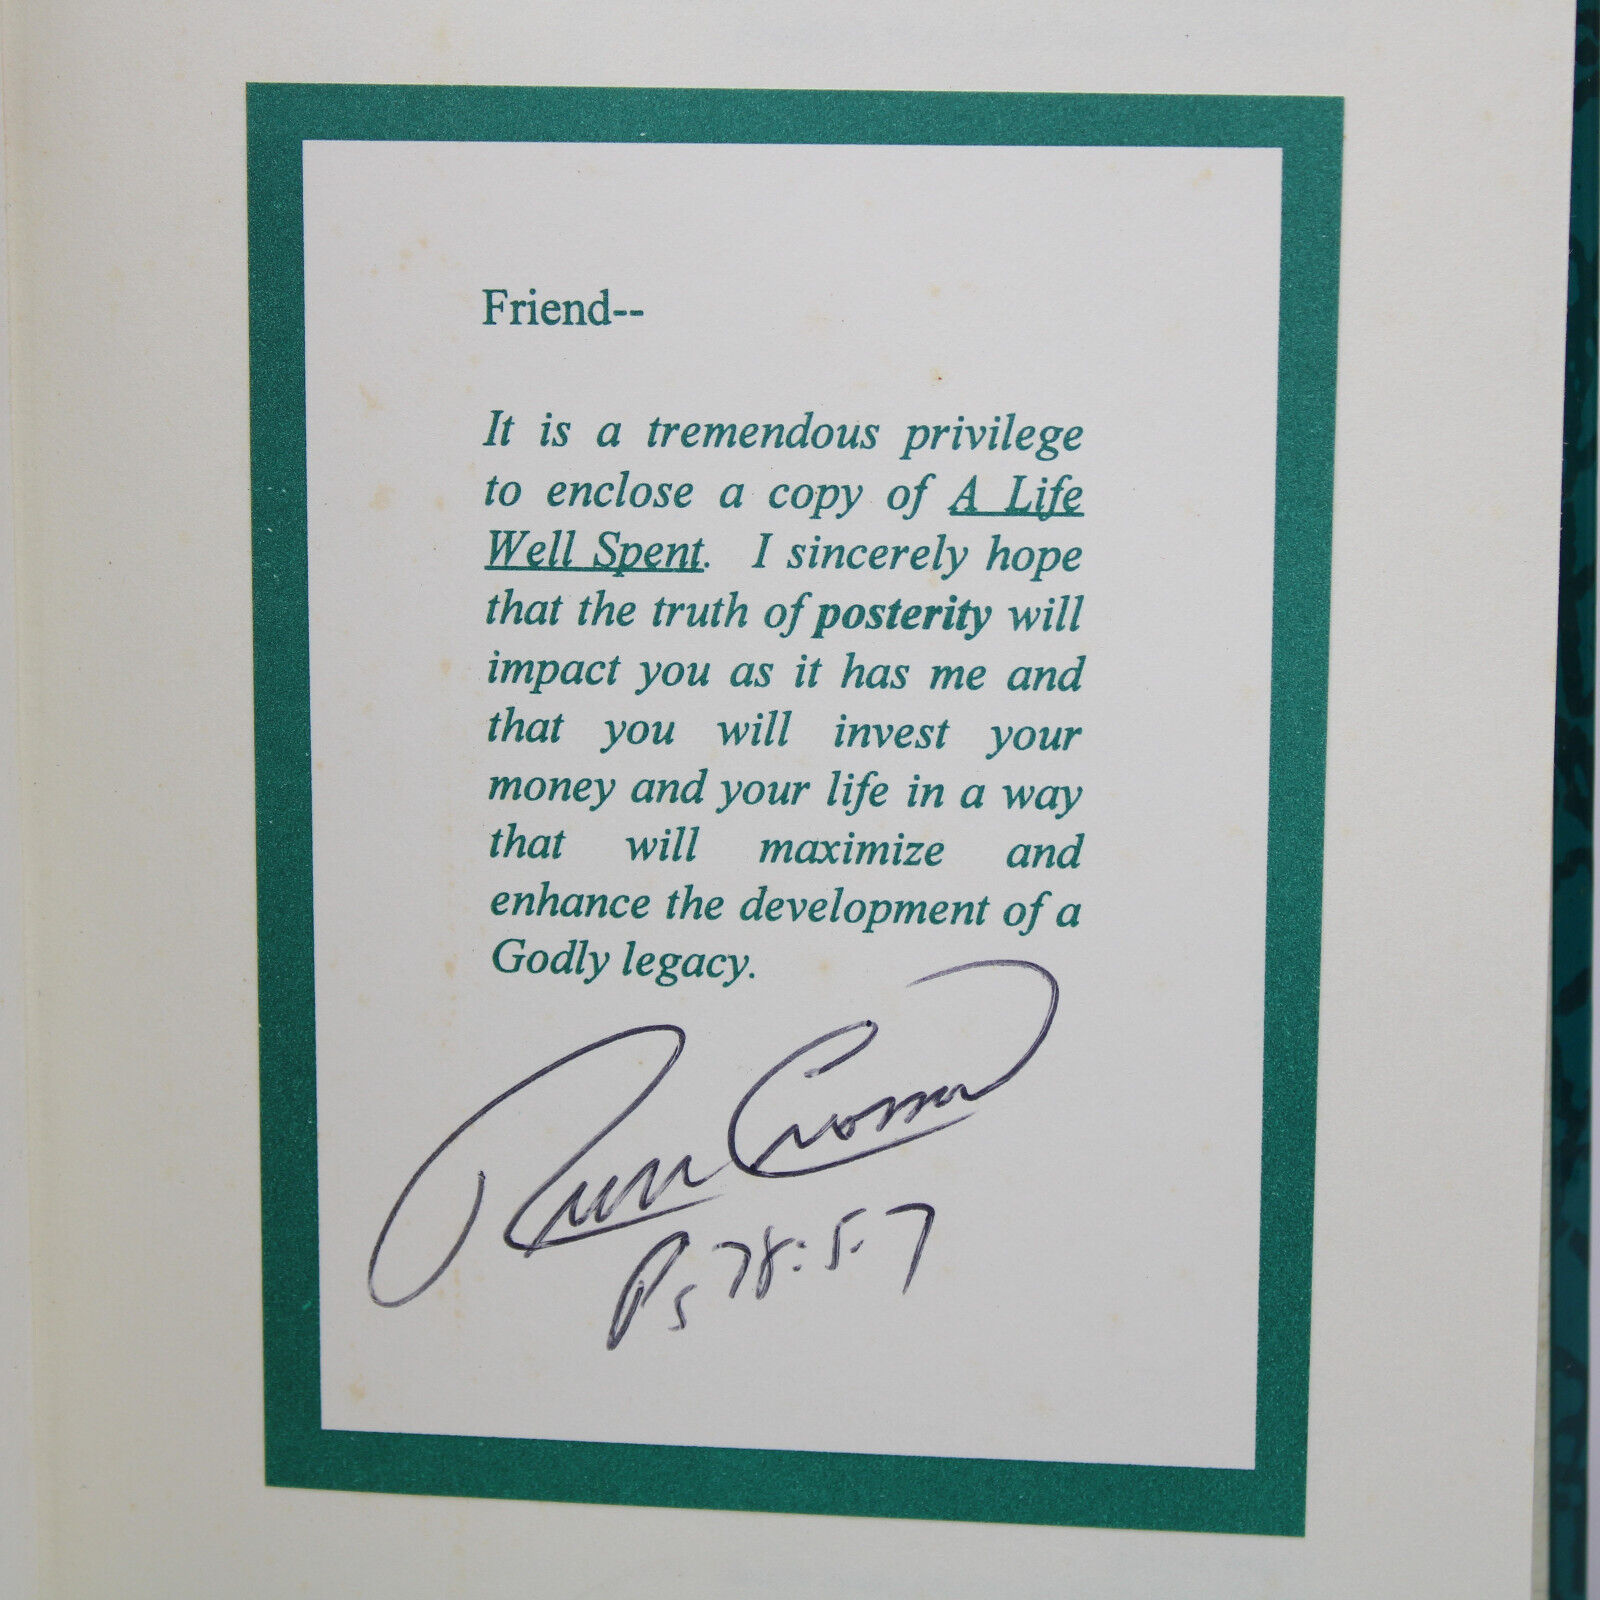 Friend--
It is a tremendous privilege
to enclose a copy of A Life
Well Spent. I sincerely hope
that the truth of posterity will
impact you as it has me and
that you will invest your
money and your life in a way
that will maximize and
enhance the development of a
Godly legacy.
Russ Crosson
Ps 78:5-7